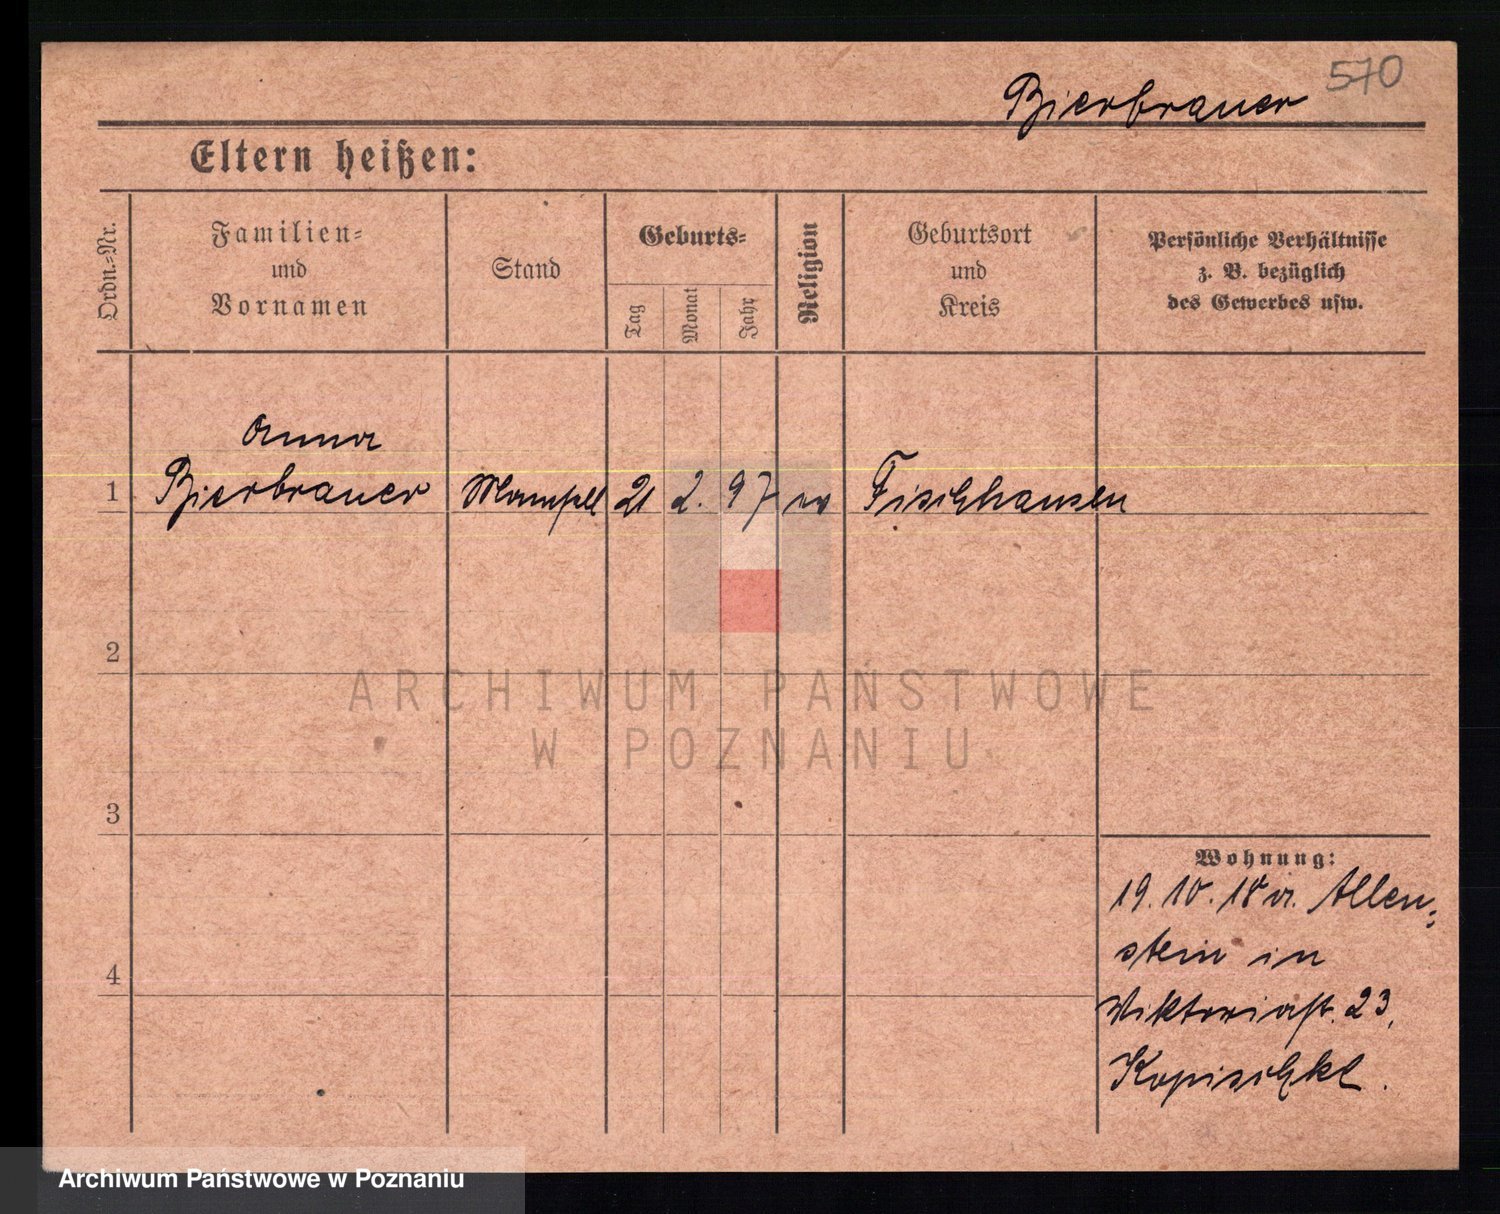 570
Bierbrauer
Eltern heißen:
Ordn.-Nr.
Familien-
und
Vornamen
Stand
Geburts-
Tag
Monat
Jahr
Religion
Geburtsort
und
Kreis
Persönliche Verhältnisse
z. B. bezüglich
des Gewerbes usw.
Anna
1 Bierbrauer Mamsell 21 2. 97 ev Fischhausen
2
ARCHIWUM PAŃSTWOWE
W POZNANIU
3
Wohnung:
19. 10. 18 v. Allen-
stein in
4
Viktoriastr. 23,
Archiwum Państwowe w Poznaniu